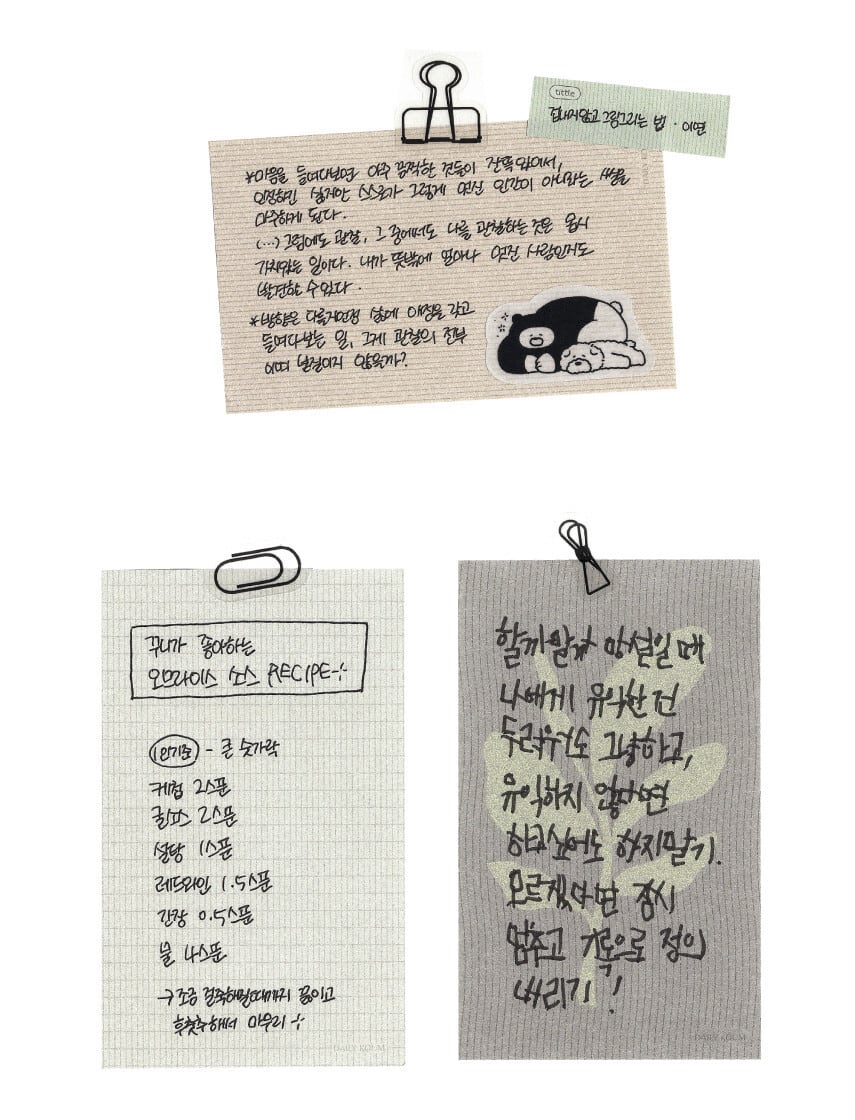 tittle
겁내지않고 그림그리는 법 · 이연
*마음을 들여다보면 아주 끔찍한 것들이 잔뜩 있어서,
인정하긴 싫지만 스스로가 그렇게 멋진 인간이 아니라는 사실을
마주하게 된다.
(...) 그럼에도 관찰, 그 중에서도 나를 관찰하는 것은 몹시
가치있는 일이다. 내가 뜻밖에 얼마나 멋진 사람인지도
발견할 수 있다.
*방향은 다를지언정 삶에 애정을 갖고
들여다보는 일, 그게 관찰의 전부
이자 본질이지 않을까?
꾸니가 좋아하는
오므라이스 소스 RECIPE
1인기준 - 큰 숫가락
케첩 2스푼
굴소스 2스푼
설탕 1스푼
레드와인 1.5스푼
간장 0.5스푼
물 4스푼
→ 조금 걸죽해질때까지 끓이고
후춧추해서 마무리
DAILY KOUM
할까말까 망설일 때
나에게 유익한 건
두려워도 그냥하고,
유익하지 않다면
하고싶어도 하지말기.
모르겠다면 잠시
멈추고 기록으로 정의
내리기!
DAILY KOUM